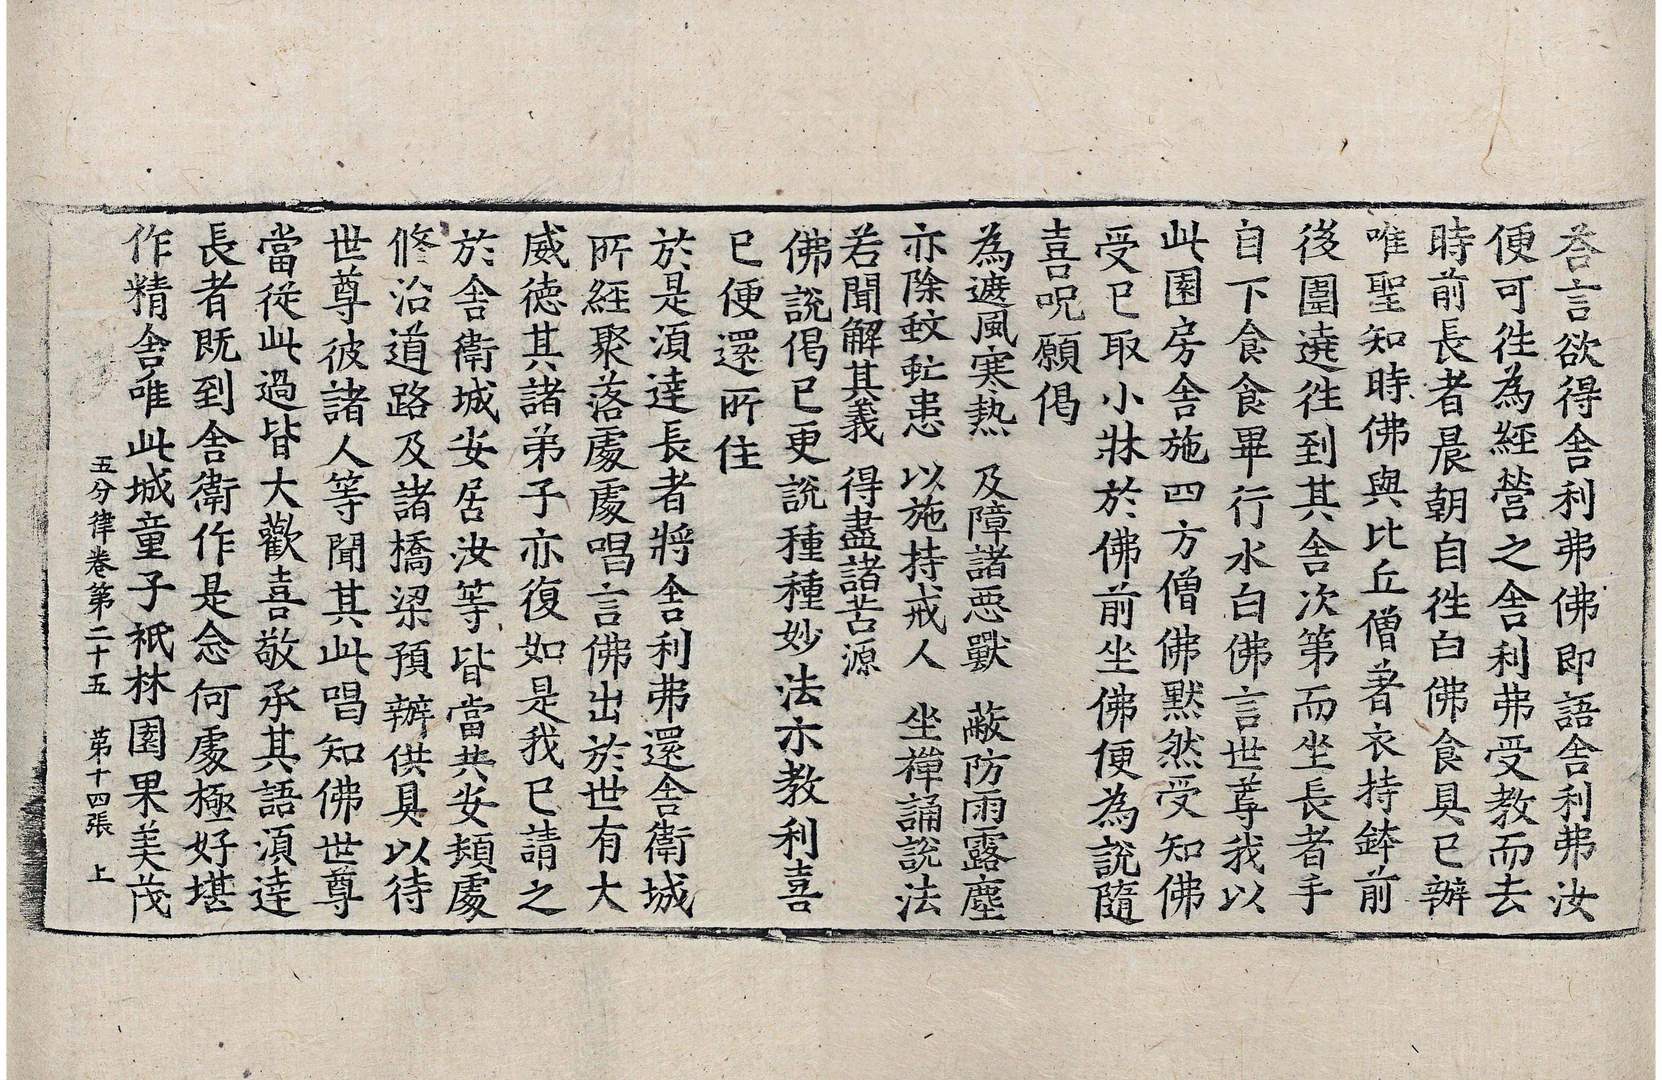 荅言欲得舍利弗佛即語舍利弗汝
便可徃為經營之舍利弗受教而去
時前長者晨朝自徃白佛食具已辦
唯聖知時佛與比丘僧著衣持鉢前
後圍遶徃到其舍次第而坐長者手
自下食食畢行水白佛言世尊我以
此園房舍施四方僧佛默然受知佛
受已取小牀於佛前坐佛便為說隨
喜呪願偈
為遮風寒熱 及障諸惡獸 蔽防雨露塵
亦除蚊虻患 以施持戒人 坐禪誦說法
若聞解其義 得盡諸苦源
佛說偈已更說種種妙法示教利喜
已便還所住
於是湏達長者將舍利弗還舍衛城
所經聚落處處唱言佛出於世有大
威德其諸弟子亦復如是我已請之
於舍衛城安居汝等皆當共安頓處
修治道路及諸橋梁預辦供具以待
世尊彼諸人等聞其此唱知佛世尊
當從此過皆大歡喜敬承其語湏達
長者既到舍衛作是念何處極好堪
作精舍唯此城童子祇林園果美茂
五分律卷第二十五 第十四張 上